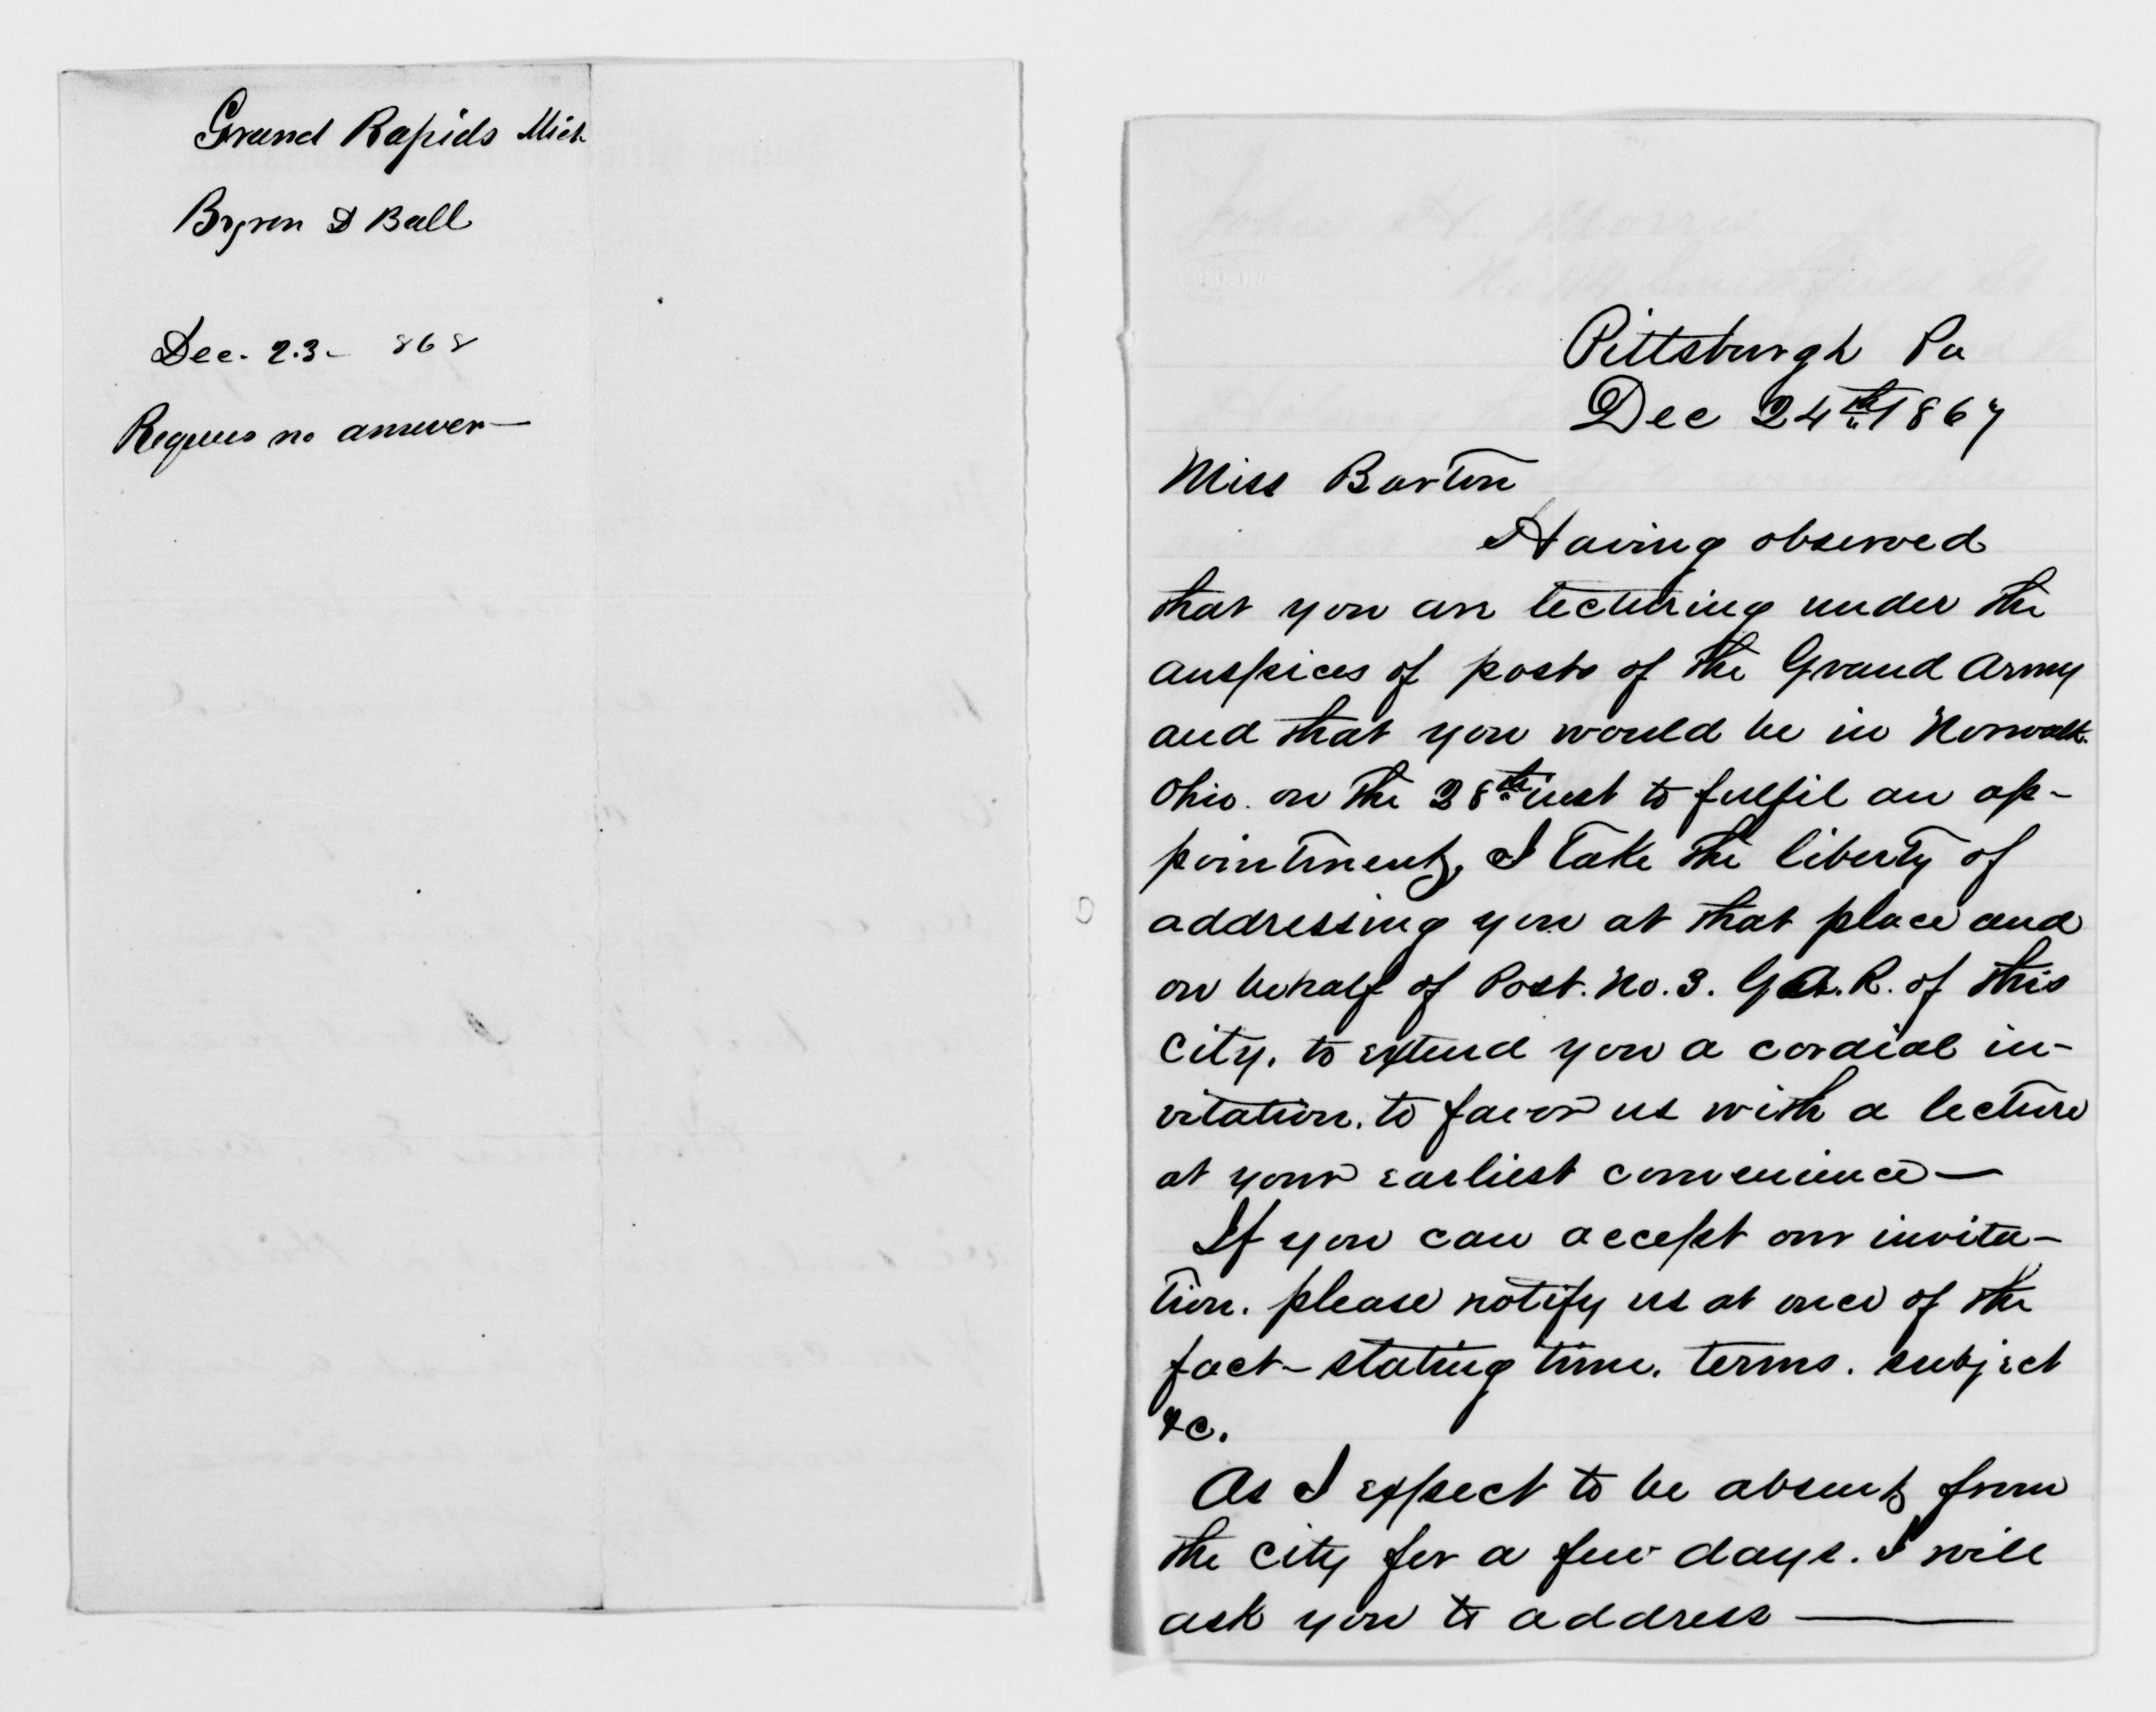 Grand Rapids Mich
Byron D Ball
Dec. 23 - 868
Requires no answer —
Pittsburgh Pa
Dec 24th 1867
Miss Barton
Having observed
that you are lecturing under the
auspices of posts of the Grand Army
and that you would be in Norwalk
Ohio. on the 28th inst to fulfil an ap-
pointment, I take the liberty of
addressing you at that place and
on behalf of Post. No. 3. G.A.R. of this
City, to extend you a cordial in-
vitation, to favor us with a lecture
at your earliest convenience —
If you can accept our invita-
tion. please notify us at once of the
fact - stating time. terms. subject
&c.
As I expect to be absent from
the City for a few days. I will
ask you to address ———